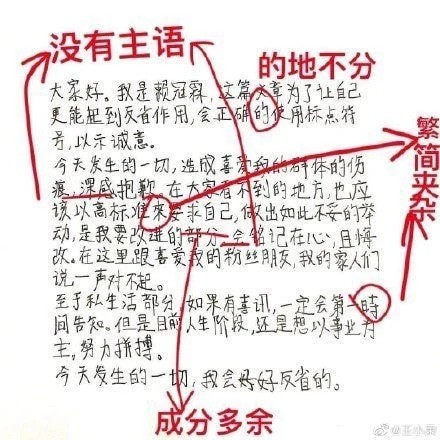 没有主语
的地不分
大家好。我是赖冠霖,这篇文章为了让自己
更能起到反省作用,会正确的使用标点符
号,以示诚意。
今天发生的一切,造成喜爱我的群体的伤
痕,深感抱歉。在大家看不到的地方,也应
该以高标准來要求自己,做出如此不妥的举
动,是我要改进的部分,会铭记在心,且悔
改。在这里跟喜爱我的粉丝朋友,我的家人们
说一声对不起。
至于私生活部分,如果有喜讯,一定会第一時
间告知。但是目前人生阶段,还是想以事业为
主,努力拼搏。
今天发生的一切,我会好好反省的。
繁简夹杂
成分多余
@王小